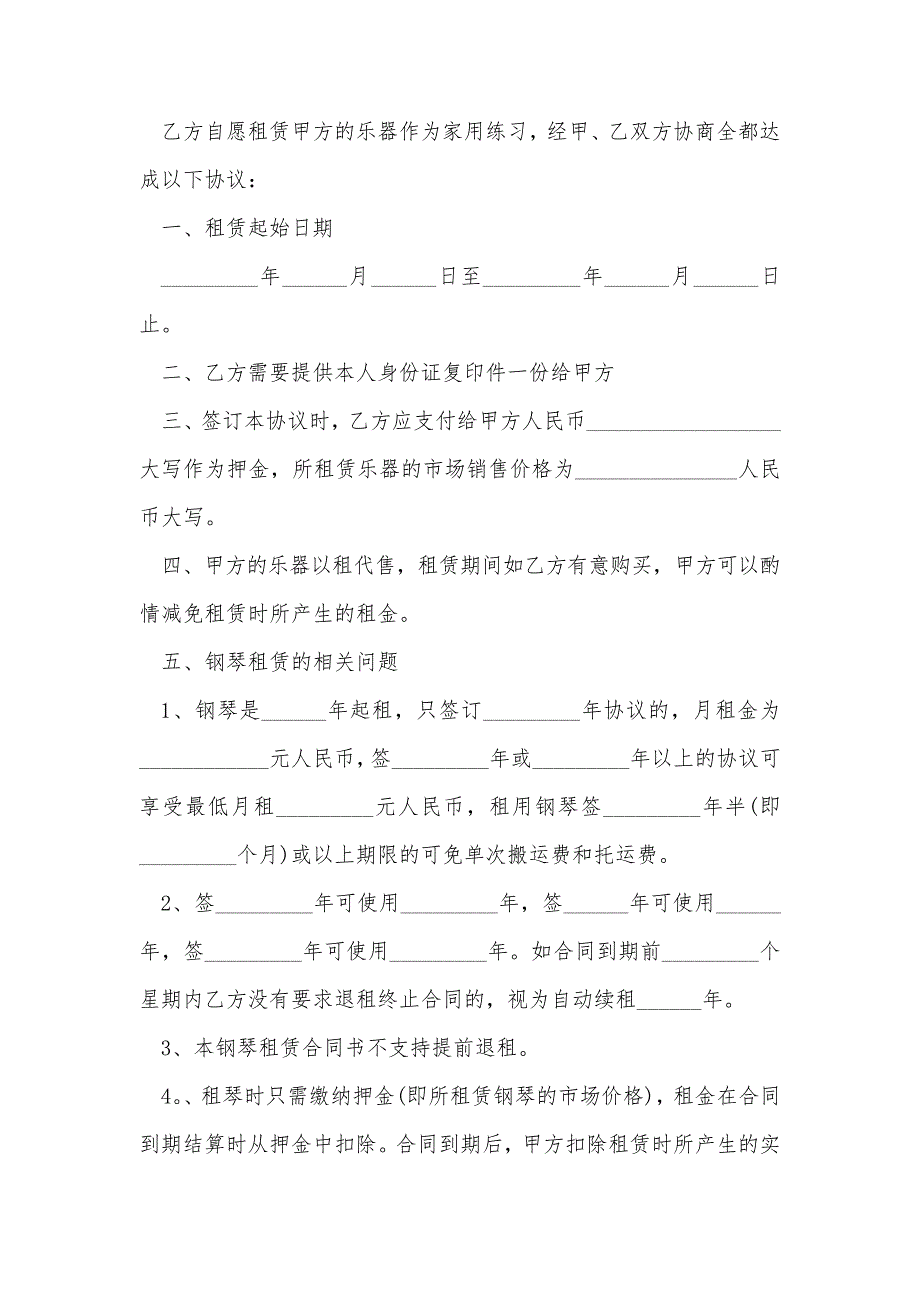 乙方自愿租赁甲方的乐器作为家用练习，经甲、乙双方协商全都达
成以下协议：
一、租赁起始日期
_________年______月______日至_________年______月______日
止。
二、乙方需要提供本人身份证复印件一份给甲方
三、签订本协议时，乙方应支付给甲方人民币__________________
大写作为押金，所租赁乐器的市场销售价格为_______________人民
币大写。
四、甲方的乐器以租代售，租赁期间如乙方有意购买，甲方可以酌
情减免租赁时所产生的租金。
五、钢琴租赁的相关问题
1、钢琴是______年起租，只签订_________年协议的，月租金为
____________元人民币，签_________年或_________年以上的协议可
享受最低月租_________元人民币，租用钢琴签_________年半(即
_________个月)或以上期限的可免单次搬运费和托运费。
2、签_________年可使用_________年，签______年可使用______
年，签_________年可使用_________年。如合同到期前_________个
星期内乙方没有要求退租终止合同的，视为自动续租______年。
3、本钢琴租赁合同书不支持提前退租。
4。、租琴时只需缴纳押金(即所租赁钢琴的市场价格)，租金在合同
到期结算时从押金中扣除。合同到期后，甲方扣除租赁时所产生的实